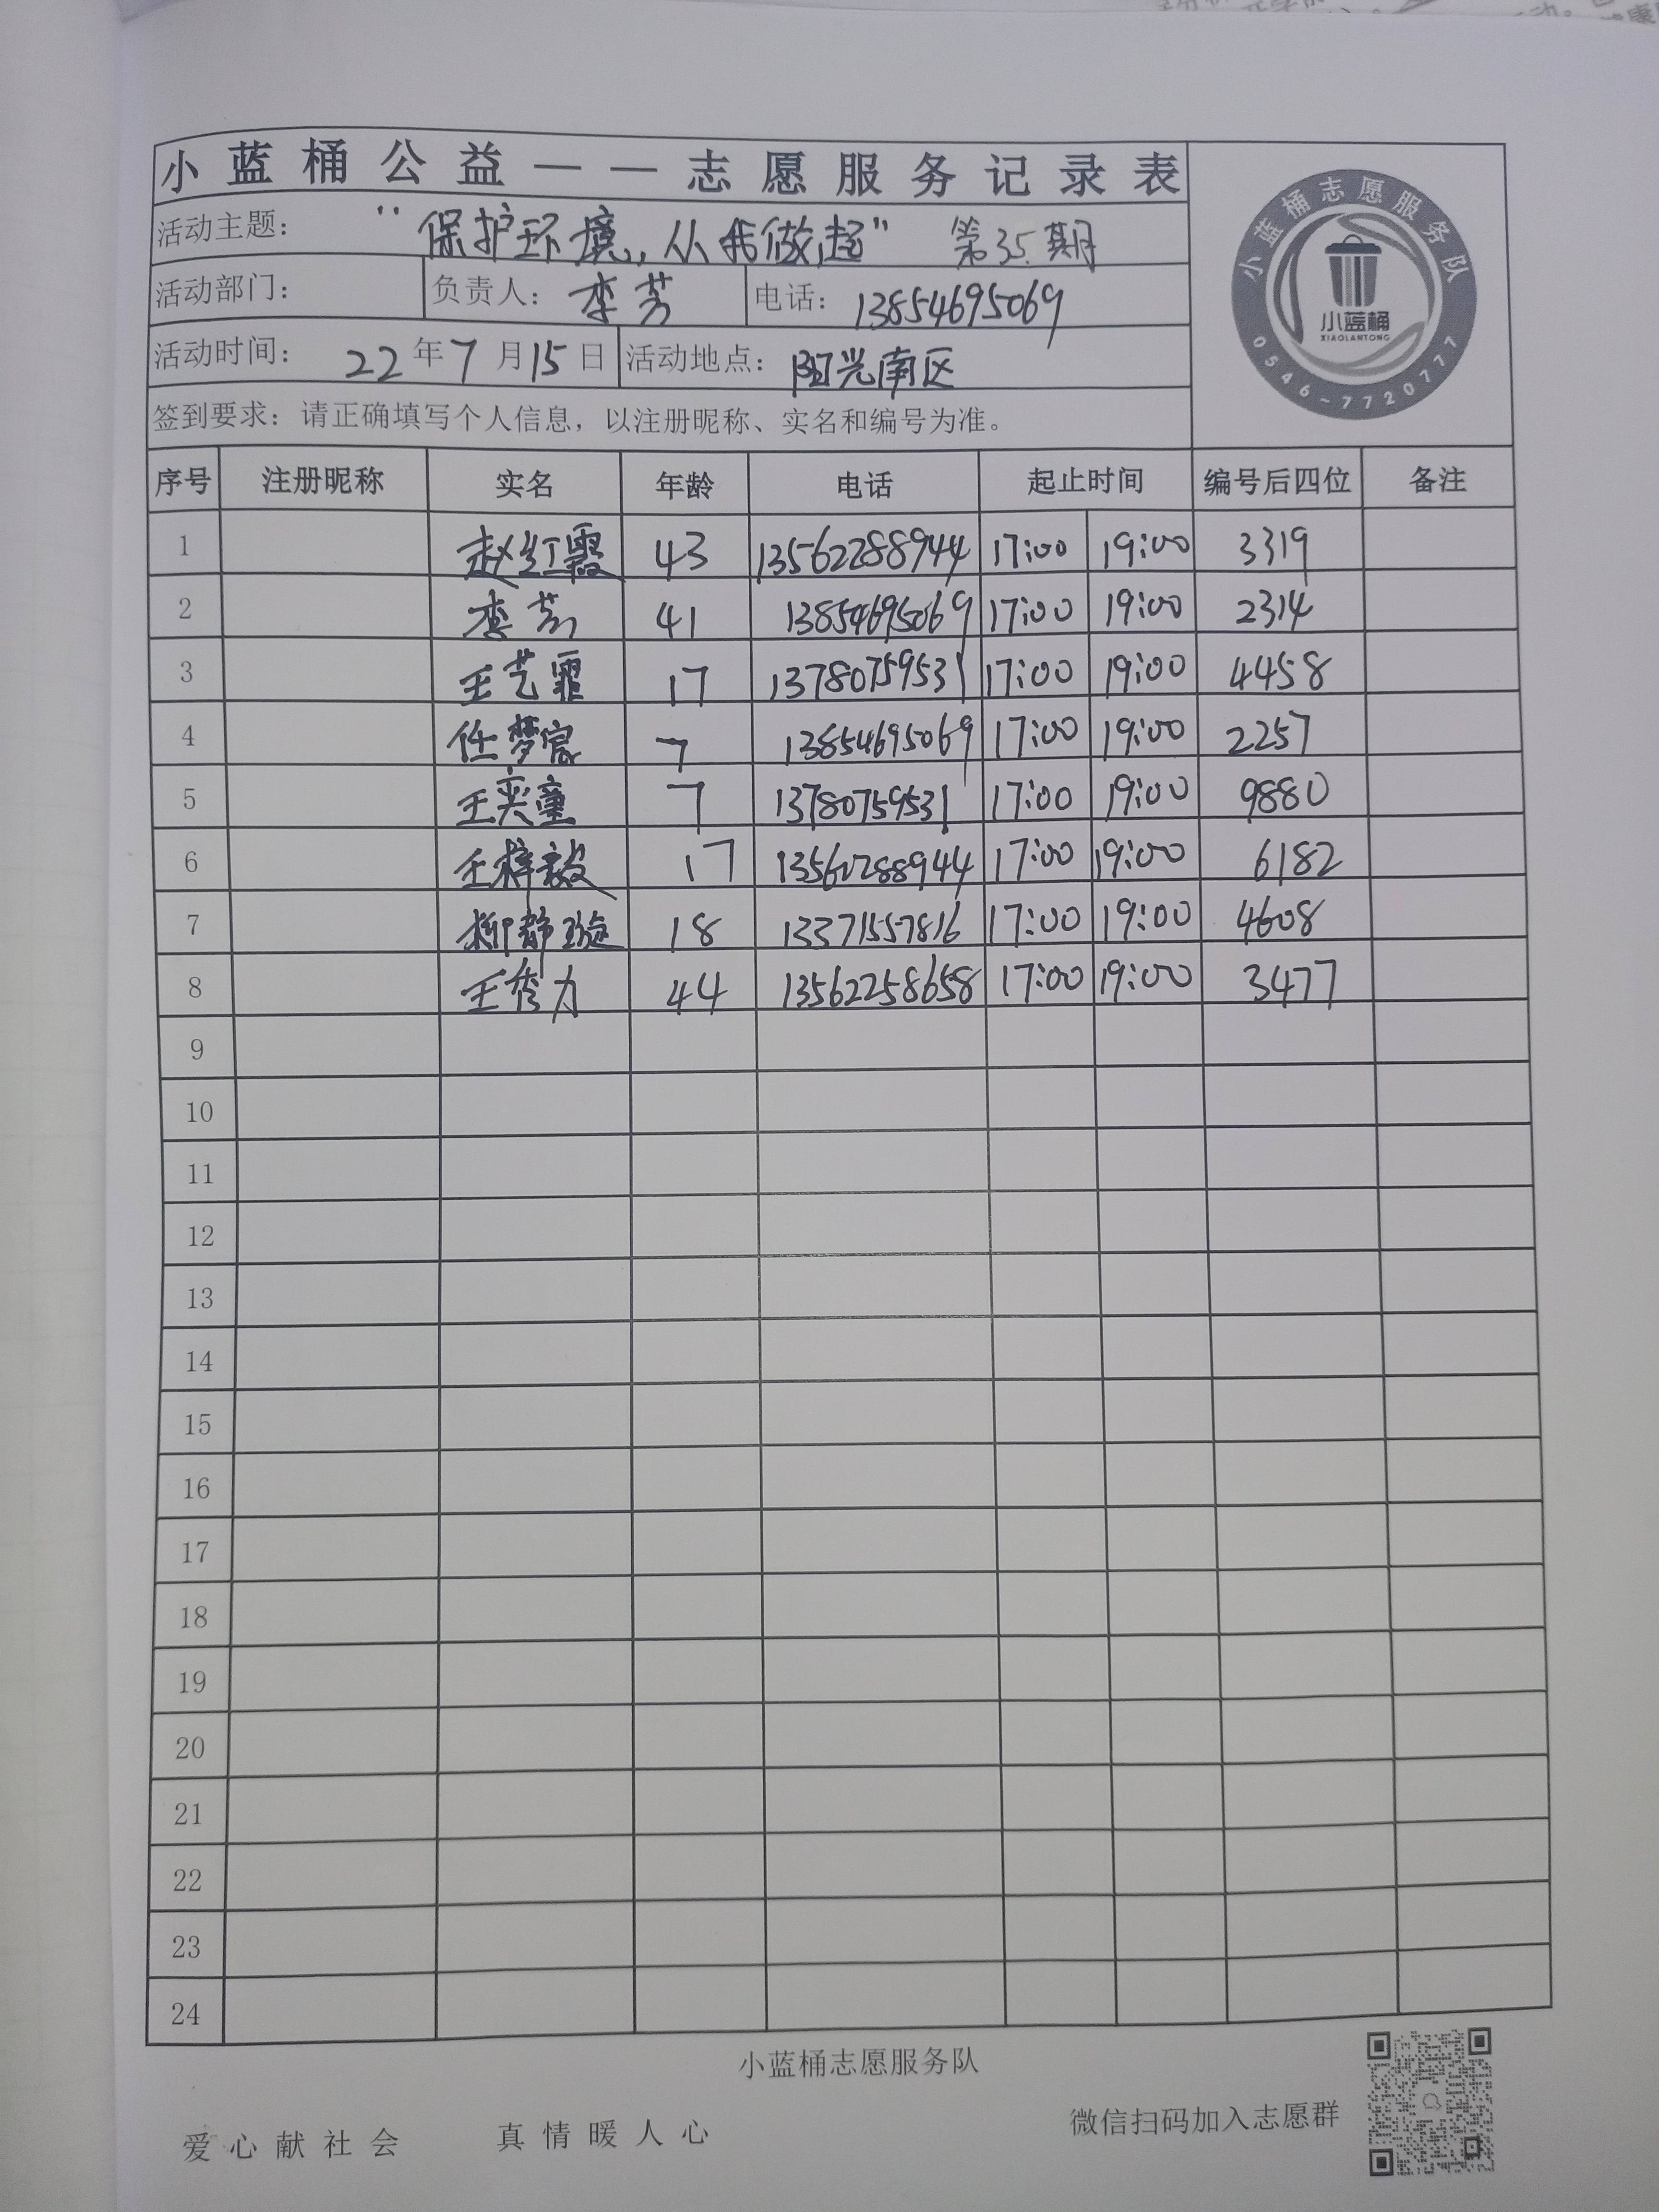 小蓝桶公益——志愿服务记录表
活动主题： “保护环境，从我做起” 第35期
活动部门： 负责人：李芳 电话：13854695069
活动时间： 22年7月15日 活动地点：阳光南区
签到要求：请正确填写个人信息，以注册昵称、实名和编号为准。
小蓝桶志愿服务队
小蓝桶
XIAOLANTONG
0546-7720777
序号 注册昵称 实名 年龄 电话 起止时间 编号后四位 备注
1 赵红霞 43 13562288944 17:00 19:00 3319
2 李芳 41 13854695069 17:00 19:00 2314
3 王艺霏 17 13780759531 17:00 19:00 4458
4 任梦宸 7 13854695069 17:00 19:00 2257
5 王奕童 7 13780759531 17:00 19:00 9880
6 王梓毅 17 13562288944 17:00 19:00 6182
7 柳静璇 18 13371557816 17:00 19:00 4608
8 王秀力 44 13562258658 17:00 19:00 3477
9
10
11
12
13
14
15
16
17
18
19
20
21
22
23
24
小蓝桶志愿服务队
爱心献社会 真情暖人心 微信扫码加入志愿群